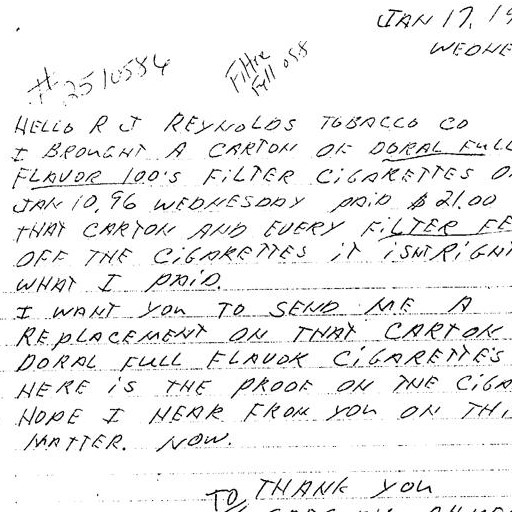 JAN 17, 19
WEDNE
#2510586
Filter
Fell off
HELLO R J REYNOLDS TOBACCO CO
I BROUGHT A CARTON OF DORAL FULL
FLAVOR 100'S FILTER CIGARETTES O
JAN 10, 96 WEDNESDAY PAID $21.00
THAT CARTON AND EVERY FILTER FE
OFF THE CIGARETTES IT ISNT RIGHT
WHAT I PAID.
I WANT YOU TO SEND ME A
REPLACEMENT ON THAT CARTON
DORAL FULL FLAVOR CIGARETTE'S
HERE IS THE PROOF ON THE CIGA
HOPE I HEAR FROM YOU ON THI
MATTER. NOW.
TO, THANK YOU